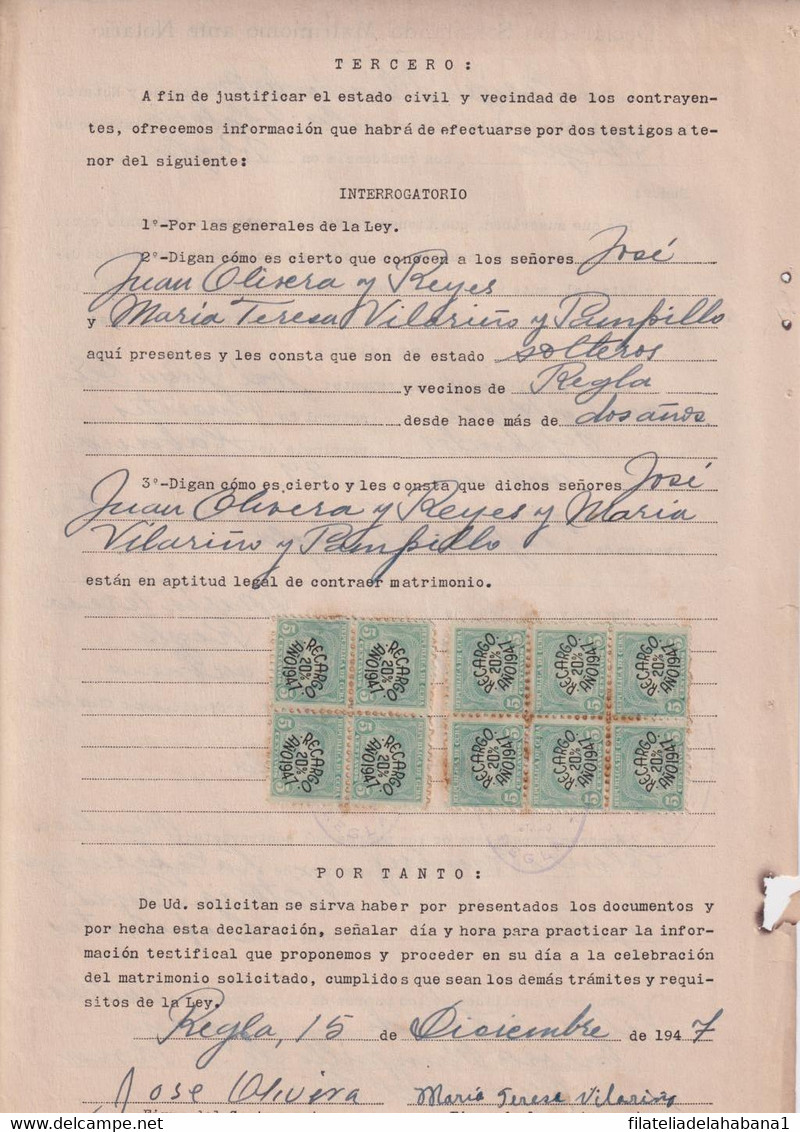 TERCERO:
A fin de justificar el estado civil y vecindad de los contrayen-
tes, ofrecemos información que habrá de efectuarse por dos testigos a te-
nor del siguiente:
INTERROGATORIO
1º-Por las generales de la Ley.
2º-Digan cómo es cierto que conocen a los señores José
Juan Olivera y Reyes
y María Teresa Vilariño y Pampillo
aquí presentes y les consta que son de estado solteros
y vecinos de Regla
desde hace más de dos años
3º-Digan cómo es cierto y les consta que dichos señores José
Juan Olivera y Reyes y María
Vilariño y Pampillo
están en aptitud legal de contraer matrimonio.
RECARGO 20% AÑO 1947
RECARGO 20% AÑO 1947
RECARGO 20% AÑO 1947
RECARGO 20% AÑO 1947
RECARGO 20% AÑO 1947
RECARGO 20% AÑO 1947
RECARGO 20% AÑO 1947
RECARGO 20% AÑO 1947
RECARGO 20% AÑO 1947
RECARGO 20% AÑO 1947
POR TANTO:
De Ud. solicitan se sirva haber por presentados los documentos y
por hecha esta declaración, señalar día y hora para practicar la infor-
mación testifical que proponemos y proceder en su día a la celebración
del matrimonio solicitado, cumplidos que sean los demás trámites y requi-
sitos de la Ley.
Regla, 15 de Diciembre de 1947
Jose Olivera María Teresa Vilariño
filateliadelahabana1